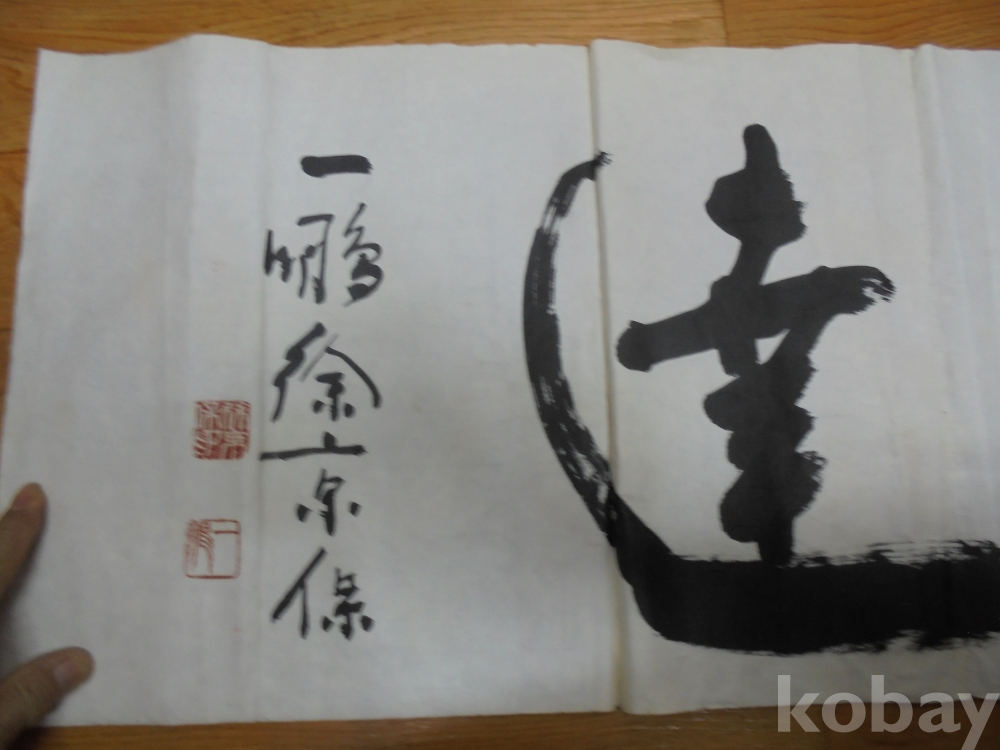 達
一鵬徐京保
kobay